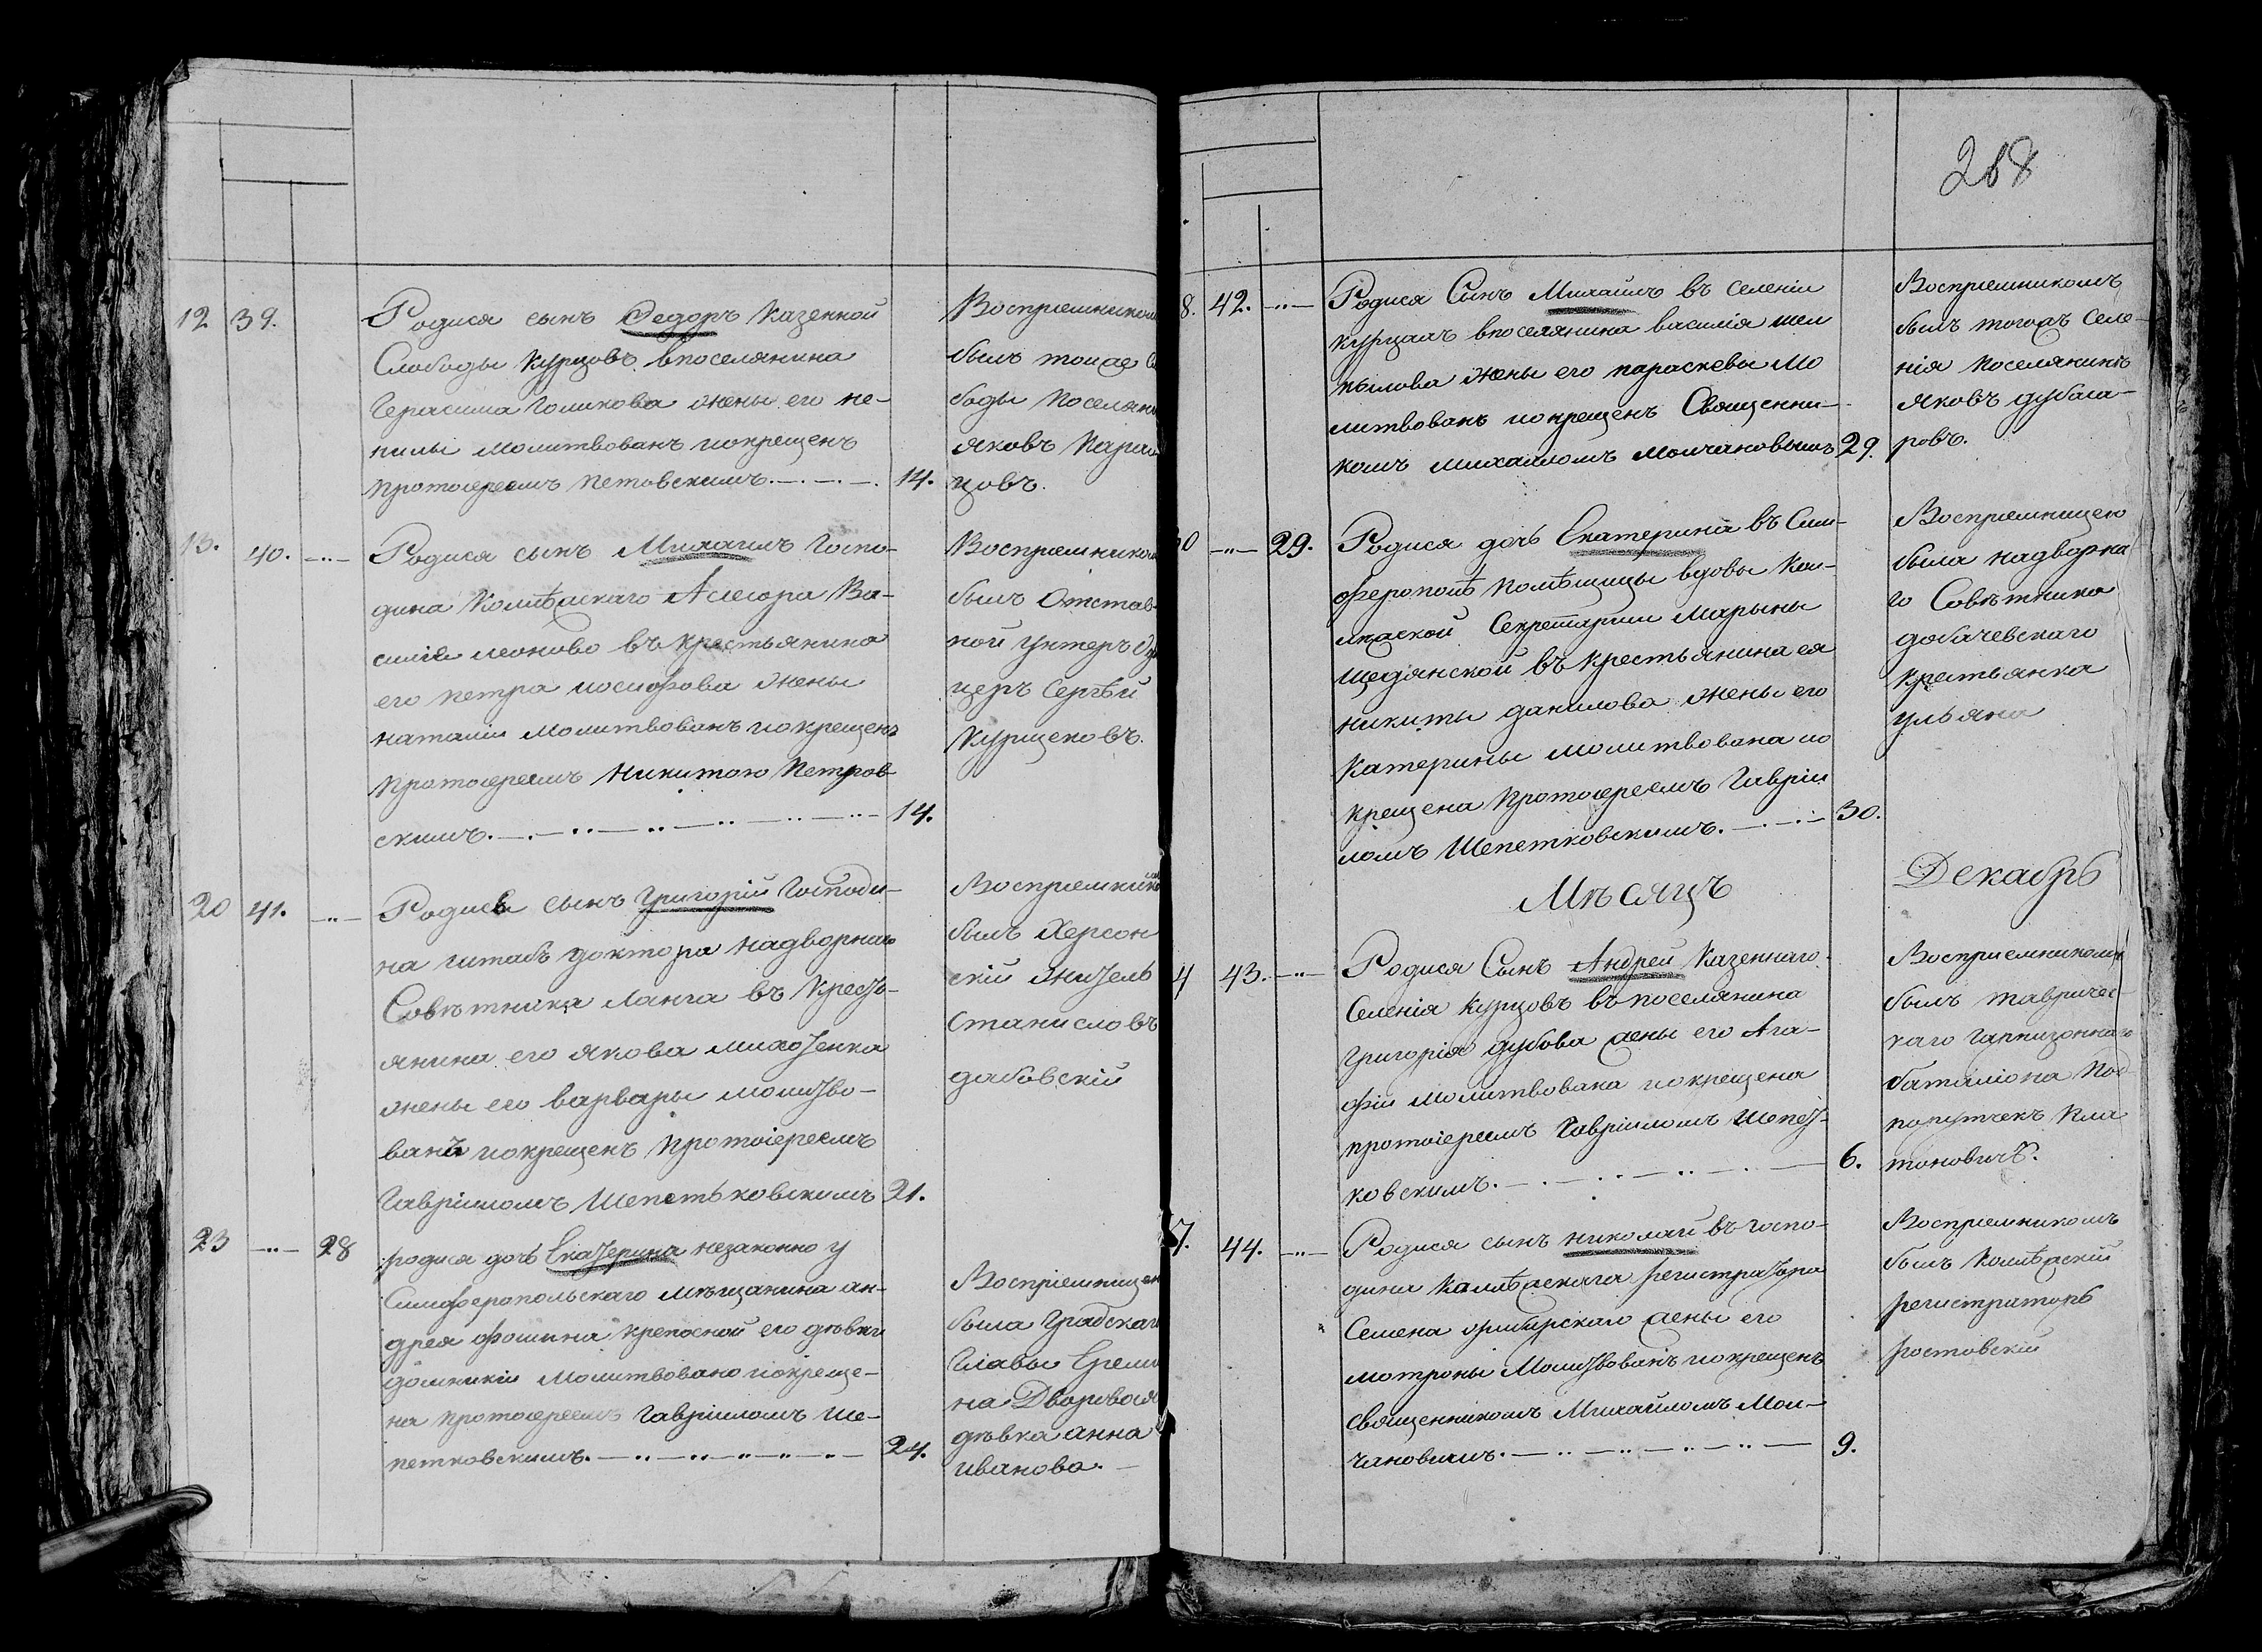 12 39. Родися сынъ Федоръ казенной
Слободы Курцовъ впоселянина
Герасима Голикова жены его не-
нилы молитвованъ иокрещенъ
протоиереемъ Петовскимъ. 14.
Восприемником
былъ тойже
боды поселян
яковъ
цовъ.
13. 40. Родися сынъ Михаилъ Госпо-
дина Коллѣжскаго Асесора Ва-
силія леонова въ крестьянина
его петра иосифова жены
наталіи молитвованъ иокрещенъ
протоиереемъ Никитою Петров-
скимъ. 14.
Восприемником
былъ Отстав-
ной унтеръ Оф
церъ Сергѣй
Курщековъ.
20 41. Родися сынъ Григорій Господи-
на штабъ доктора надворнаго
Совѣтника Ланга въ крестъ-
янина его якова
жены его варвары молитво-
ванъ иокрещенъ протоіереемъ
Гавріиломъ Шепетьковскимъ 21.
Восприемником
былъ Херсон
скій житель
Станиславъ
дабовскій
23 28 родися дочь Екатерина незаконно у
Симферопольскаго мѣщанина ан-
дрея фомина крепосной его дѣвки
домникіи молитвована иокреще-
на протоиереемъ Гавріиломъ Ше-
петковскимъ. 24.
Восприемницею
была Градскаго
Главы Ереми
на Дворовая
дѣвка анна
иванова.
268
8. 42. Родися Сынъ Михаилъ въ селеніи
курцахъ впоселянина василія шел
кылова жены его параскевы мо
литвованъ иокрещенъ Священни-
комъ михаиломъ Молчановымъ 29.
Восприемникомъ
былъ тогожъ селе-
нія поселянинъ
яковъ дубаса-
ровъ.
30 29. Родися дочь Екатерина въ Сим-
ферополѣ помѣщицы вдовы Кол-
лѣжской Секретарши Марьины
Щедянской въ крестьянина ея
никиты данилова жены его
катерины молитвована ио
крещена протоиереемъ Гавріи
ломъ Шепетковскимъ. 30.
Восприемницею
была надворна
го Совѣтника
добачевскаго
крестьянка
ульяна
Мѣсяцъ Декабрь
4 43. Родися Сынъ Андрей казеннаго
Селенія курцовъ въ поселянина
Григорія дубова жены его Ага-
фіи молитвована иокрещена
протоіереемъ Гавріиломъ Шепет-
ковскимъ. 6.
Восприемникомъ
былъ тавричес-
каго гарнизоннаго
баталіона Под
порутчекъ Пла
тоновичъ.
7. 44. Родися сынъ николай въ госпо-
дина Калѣжскага регистратора
Семена жены его
мотроны молитвованъ иокрещенъ
священникомъ Михаиломъ Мол-
чановымъ. 9.
Восприемникомъ
былъ Коллѣжскій
регистраторъ
ростовскій